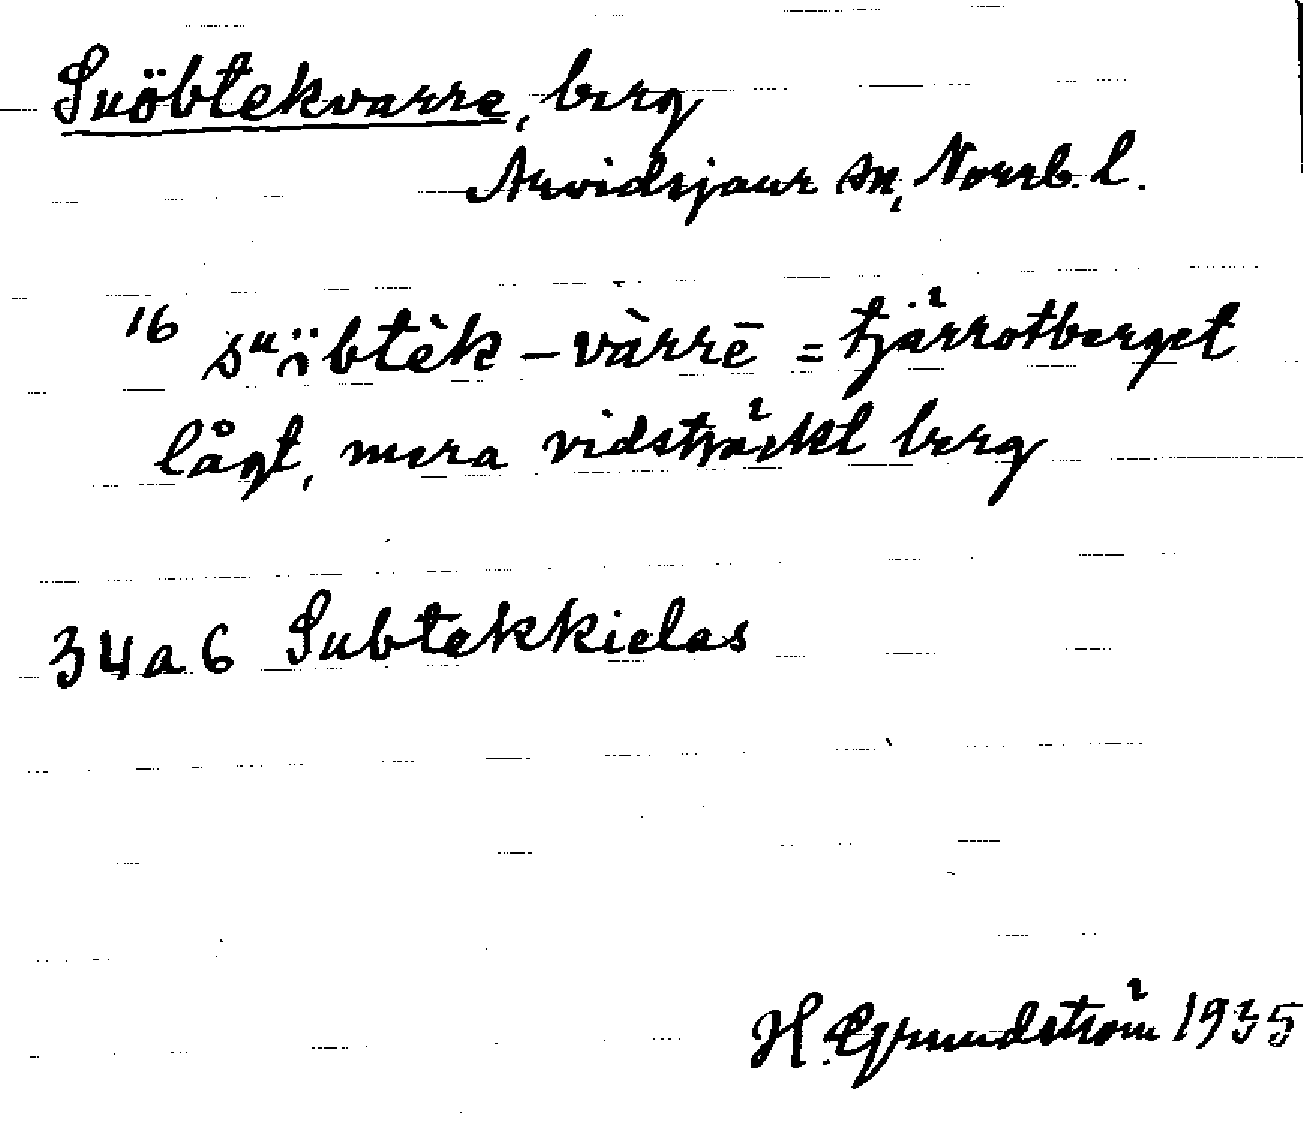 Suöbtekvarre, berg
Arvidsjaur sn, Norrb. l.
16 sᵘi̯btèk – vàrrē = tjärrotberget
lågt, mera vidsträckt berg
34 a. 6 Subtekkielas
H. Grundström 1935